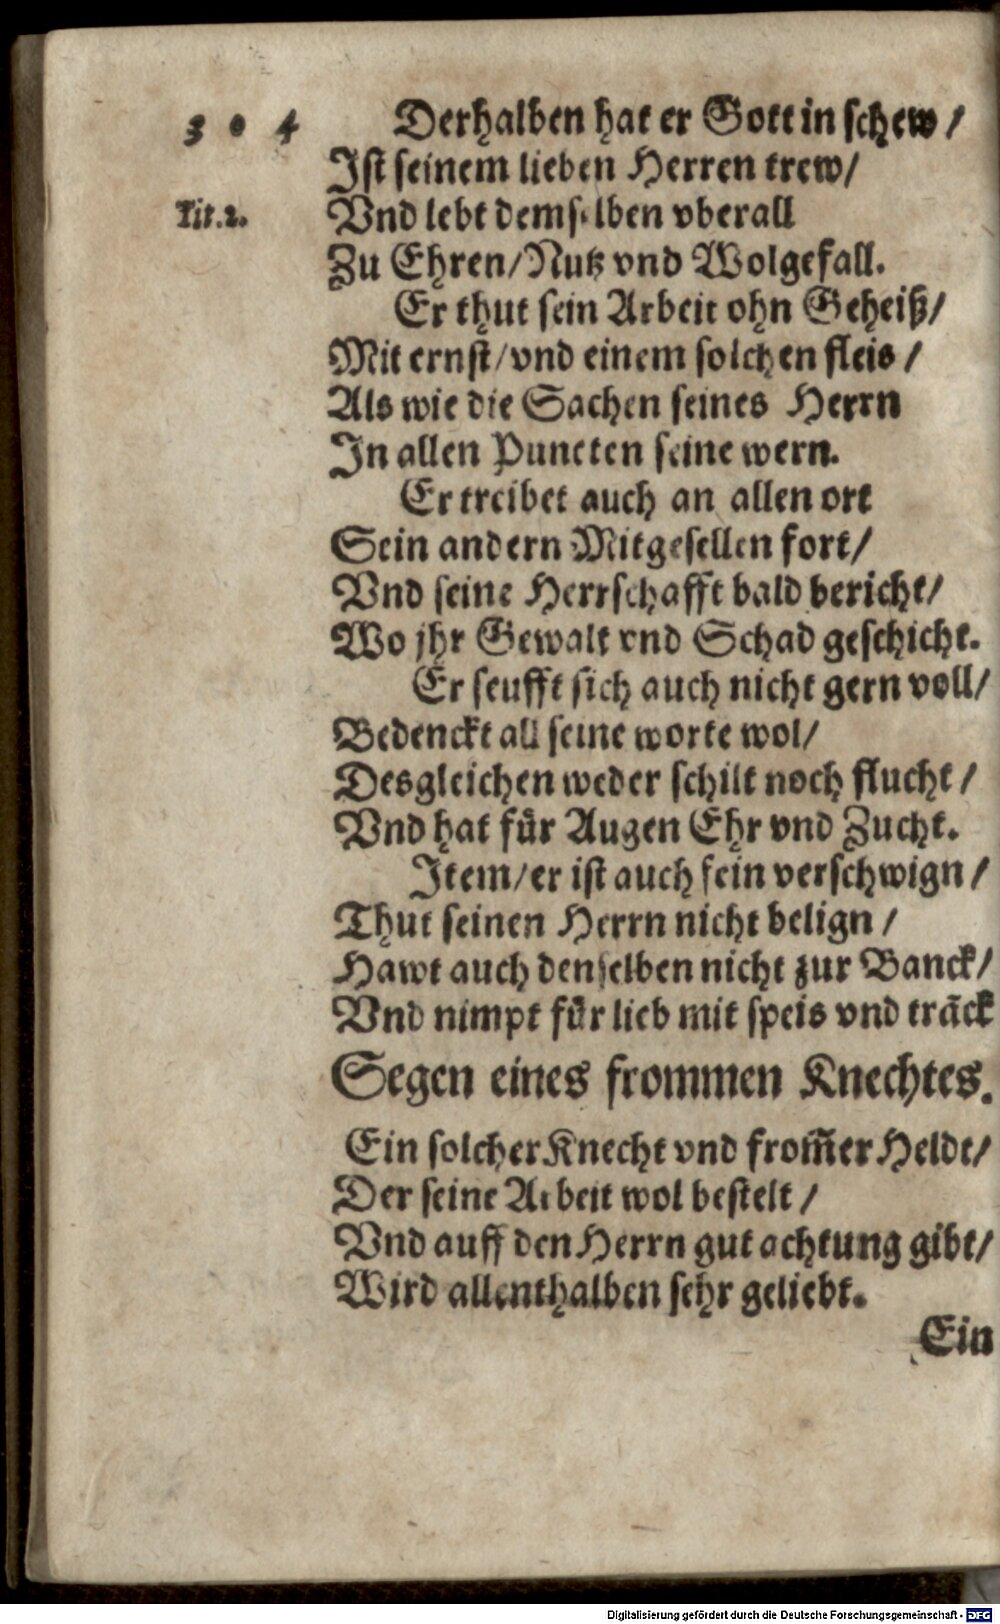 3 0 4
Derhalben hat er Gott in schew /
Ist seinem lieben Herren trew/
Tit.2.
Vnd lebt demselben vberall
Zu Ehren/Nutz vnd Wolgefall.
Er thut sein Arbeit ohn Geheiß/
Mit ernst/vnd einem solchen fleis /
Als wie die Sachen seines Herrn
In allen Puncten seine wern.
Er treibet auch an allen ort
Sein andern Mitgesellen fort/
Vnd seine Herrschafft bald bericht/
Wo jhr Gewalt vnd Schad geschicht.
Er seufft sich auch nicht gern voll/
Bedenckt all seine worte wol/
Desgleichen weder schilt noch flucht /
Vnd hat für Augen Ehr vnd Zucht.
Item/er ist auch fein verschwign /
Thut seinen Herrn nicht belign /
Hawt auch denselben nicht zur Banck/
Vnd nimpt für lieb mit speis vnd trãck
Segen eines frommen Knechtes.
Ein solcher Knecht vnd from̃er Heldt/
Der seine Arbeit wol bestelt /
Vnd auff den Herrn gut achtung gibt/
Wird allenthalben sehr geliebt.
Ein
Digitalisierung gefördert durch die Deutsche Forschungsgemeinschaft - DFG